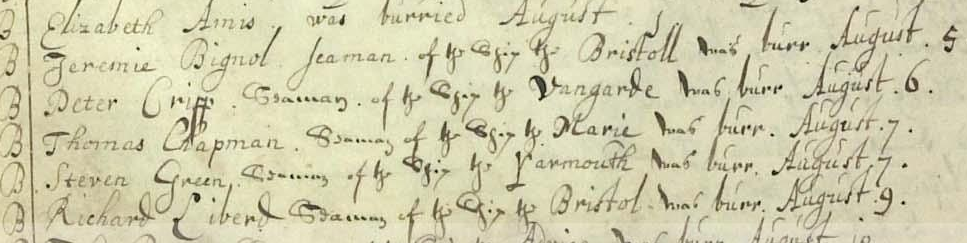 B Elizabeth Amis was burried August
B Jeremie Bignol seaman of the Ship the Bristoll was burr August. 5
B Peter Cripp. Seaman. of the Ship the Vangarde was burr August. 6.
B Thomas Chapman. Seaman of the Ship the Marie was burr. August. 7.
B Steven Green, Seaman of the Ship the Yarmouth was burr. August. 7.
B Richard Liberd Seaman of the Ship the Bristol was burr. August. 9.
was burr August 10